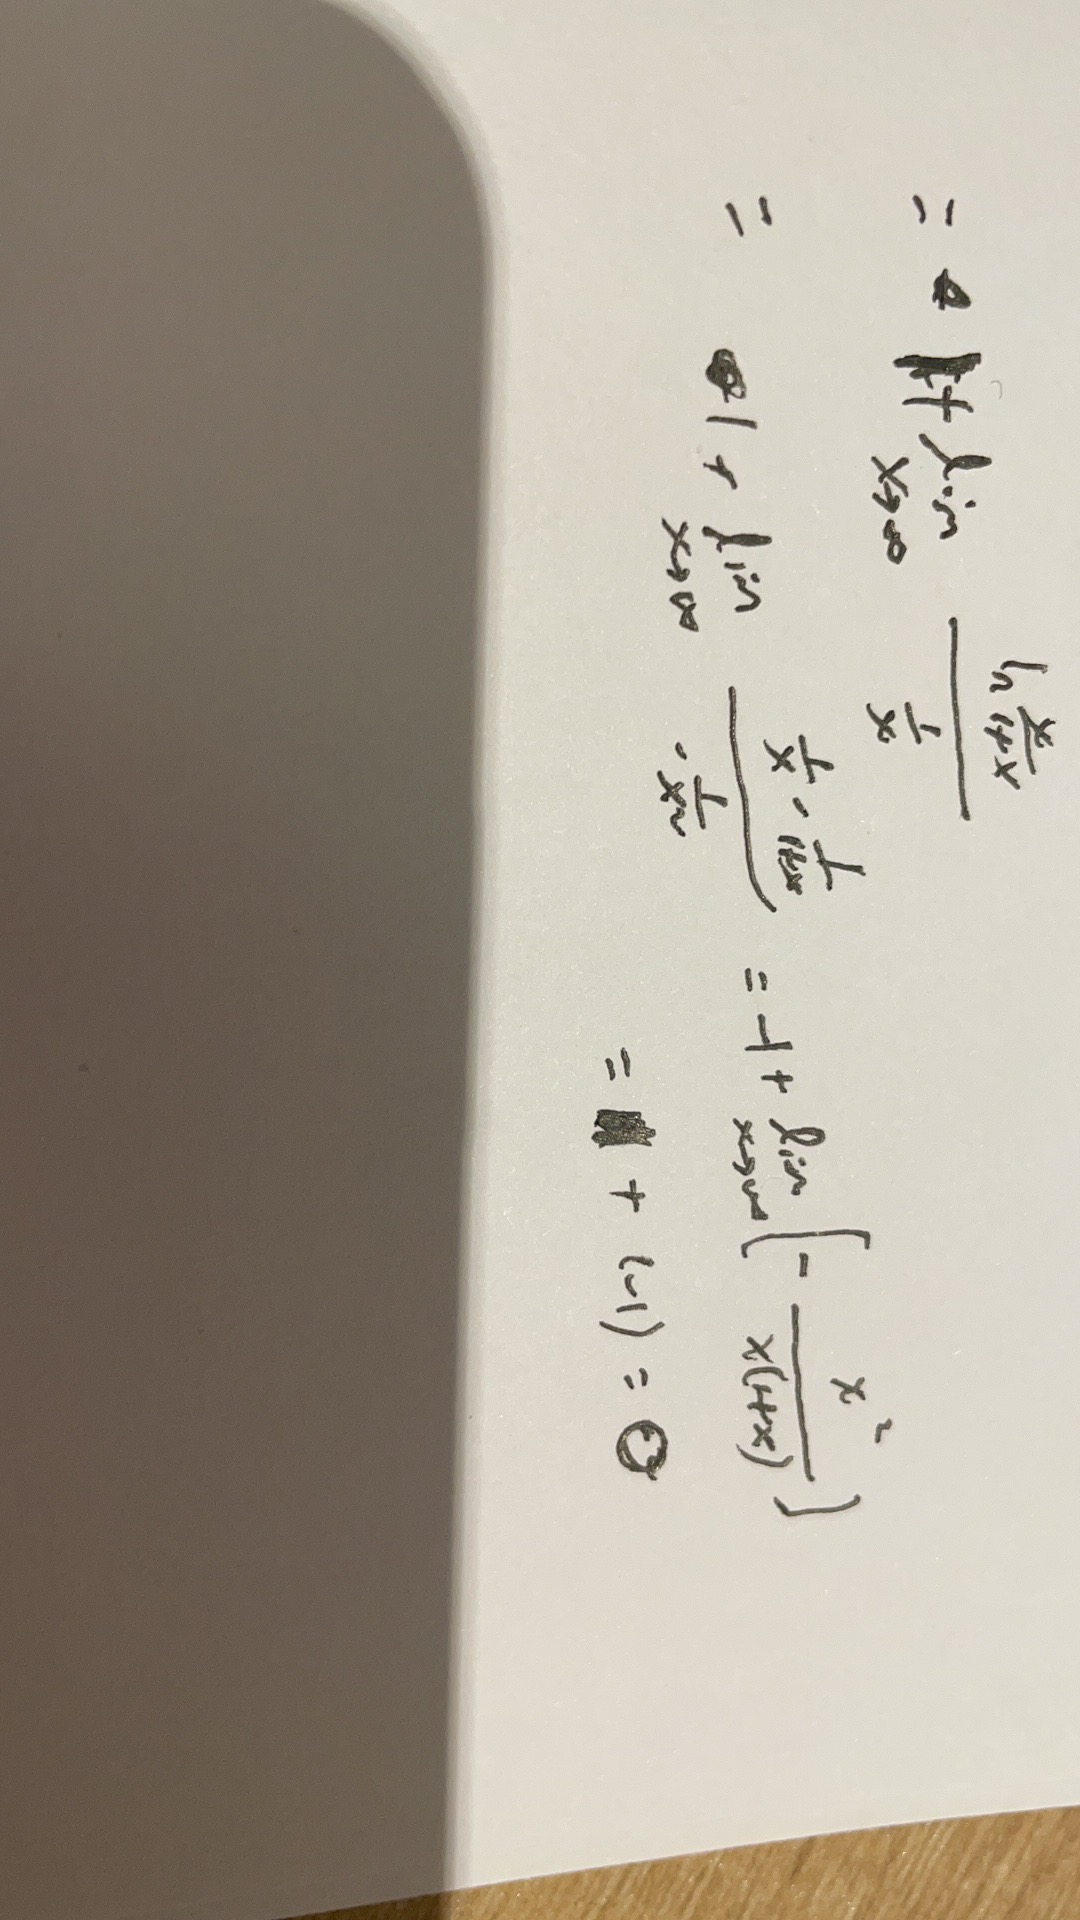 = 1 + lim x→∞ (ln x/(1+x))/(1/x)
= 1 + lim x→∞ (1/x - 1/(1+x))/(-1/x²) = 1 + lim x→∞ [- x²/(x(1+x))]
= + (-1) = 0